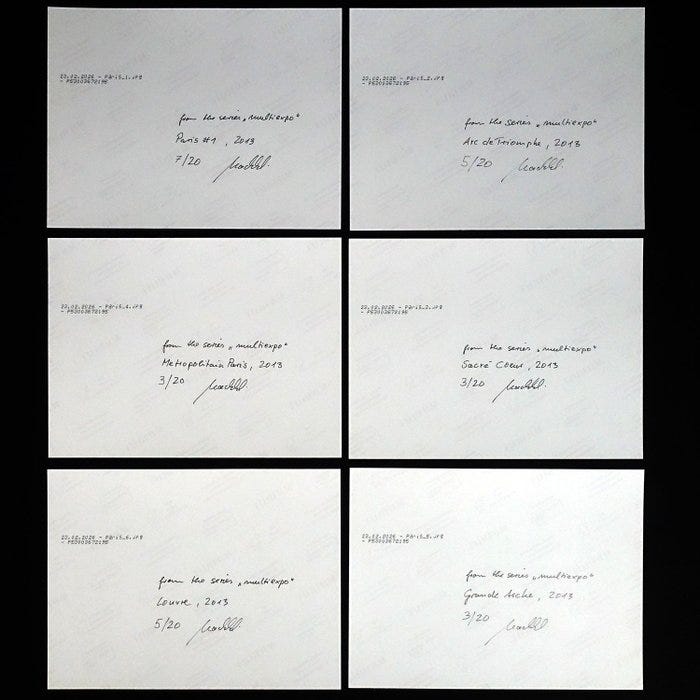 23.02.2026 - Paris_1.JPG
- P53003672195
from the series „multiexpo“
Paris #1, 2013
7/20
23.02.2026 - Paris_2.JPG
- P53003672195
from the series „multiexpo“
Arc de Triomphe, 2013
5/20
23.02.2026 - Paris_4.JPG
- P53003672195
from the series „multiexpo“
Metropolitain Paris, 2013
3/20
23.02.2026 - Paris_3.JPG
- P53003672195
from the series „multiexpo“
Sacré Coeur, 2013
3/20
23.02.2026 - Paris_6.JPG
- P53003672195
from the series „multiexpo“
Louvre, 2013
5/20
23.02.2026 - Paris_5.JPG
- P53003672195
from the series „multiexpo“
Grande Arche, 2013
3/20